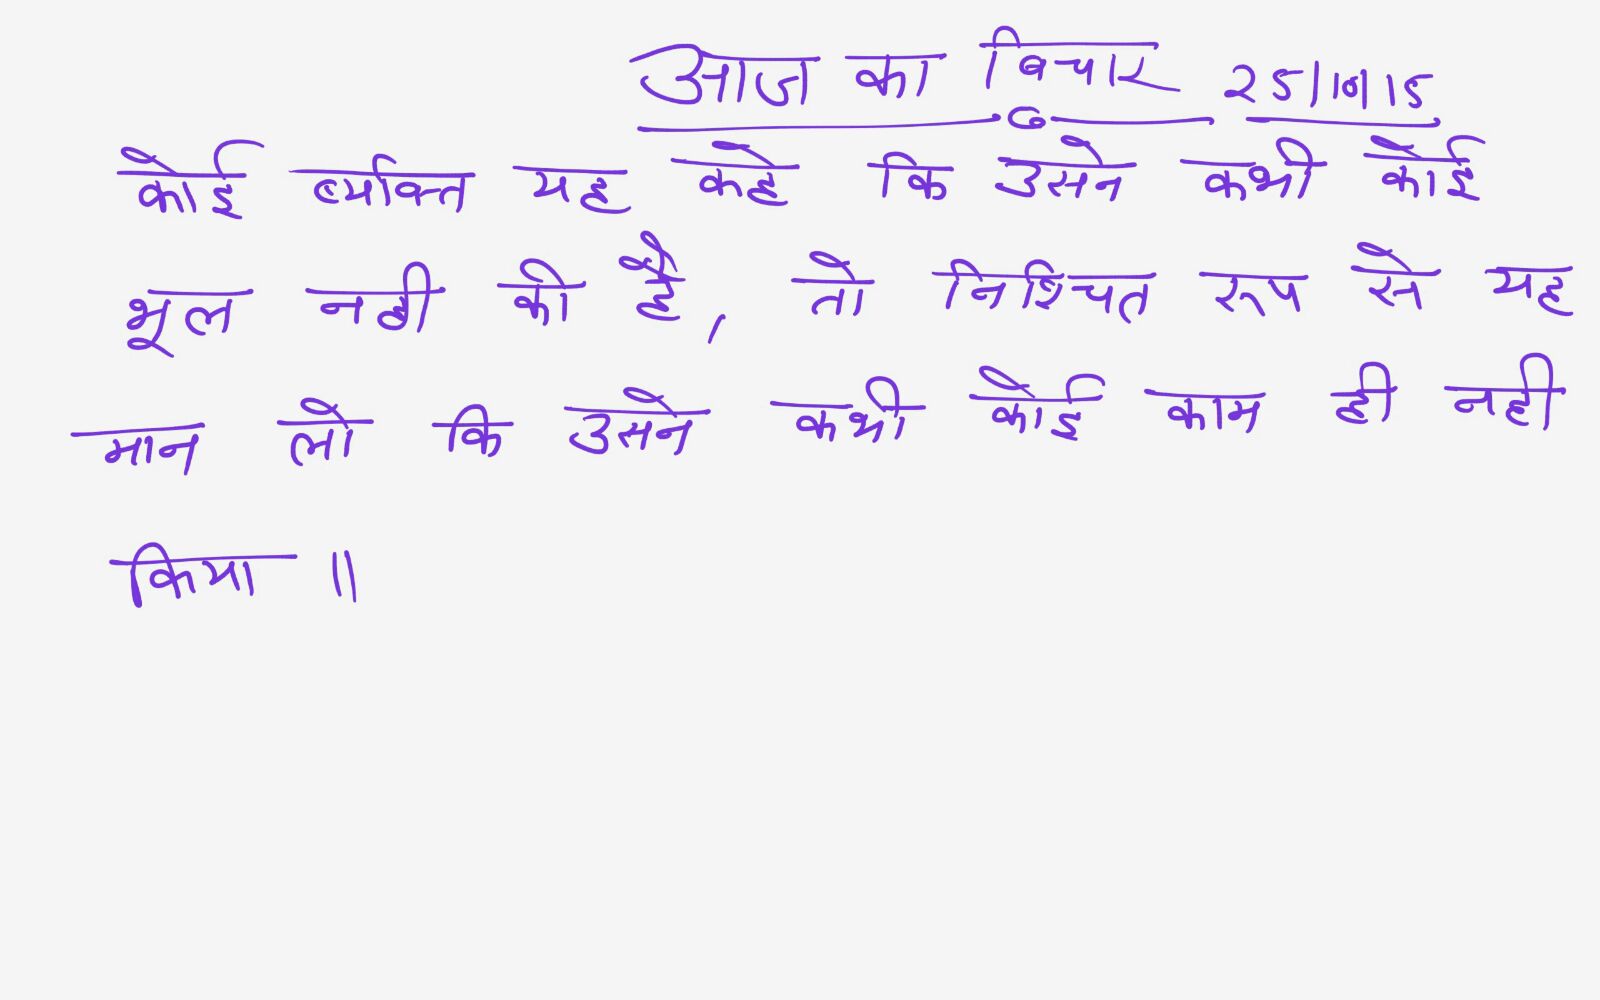 आज का विचार 25/10/15
कोई व्यक्ति यह कहे कि उसने कभी कोई
भूल नही की है, तो निश्चित रूप से यह
मान लो कि उसने कभी कोई काम ही नही
किया ॥